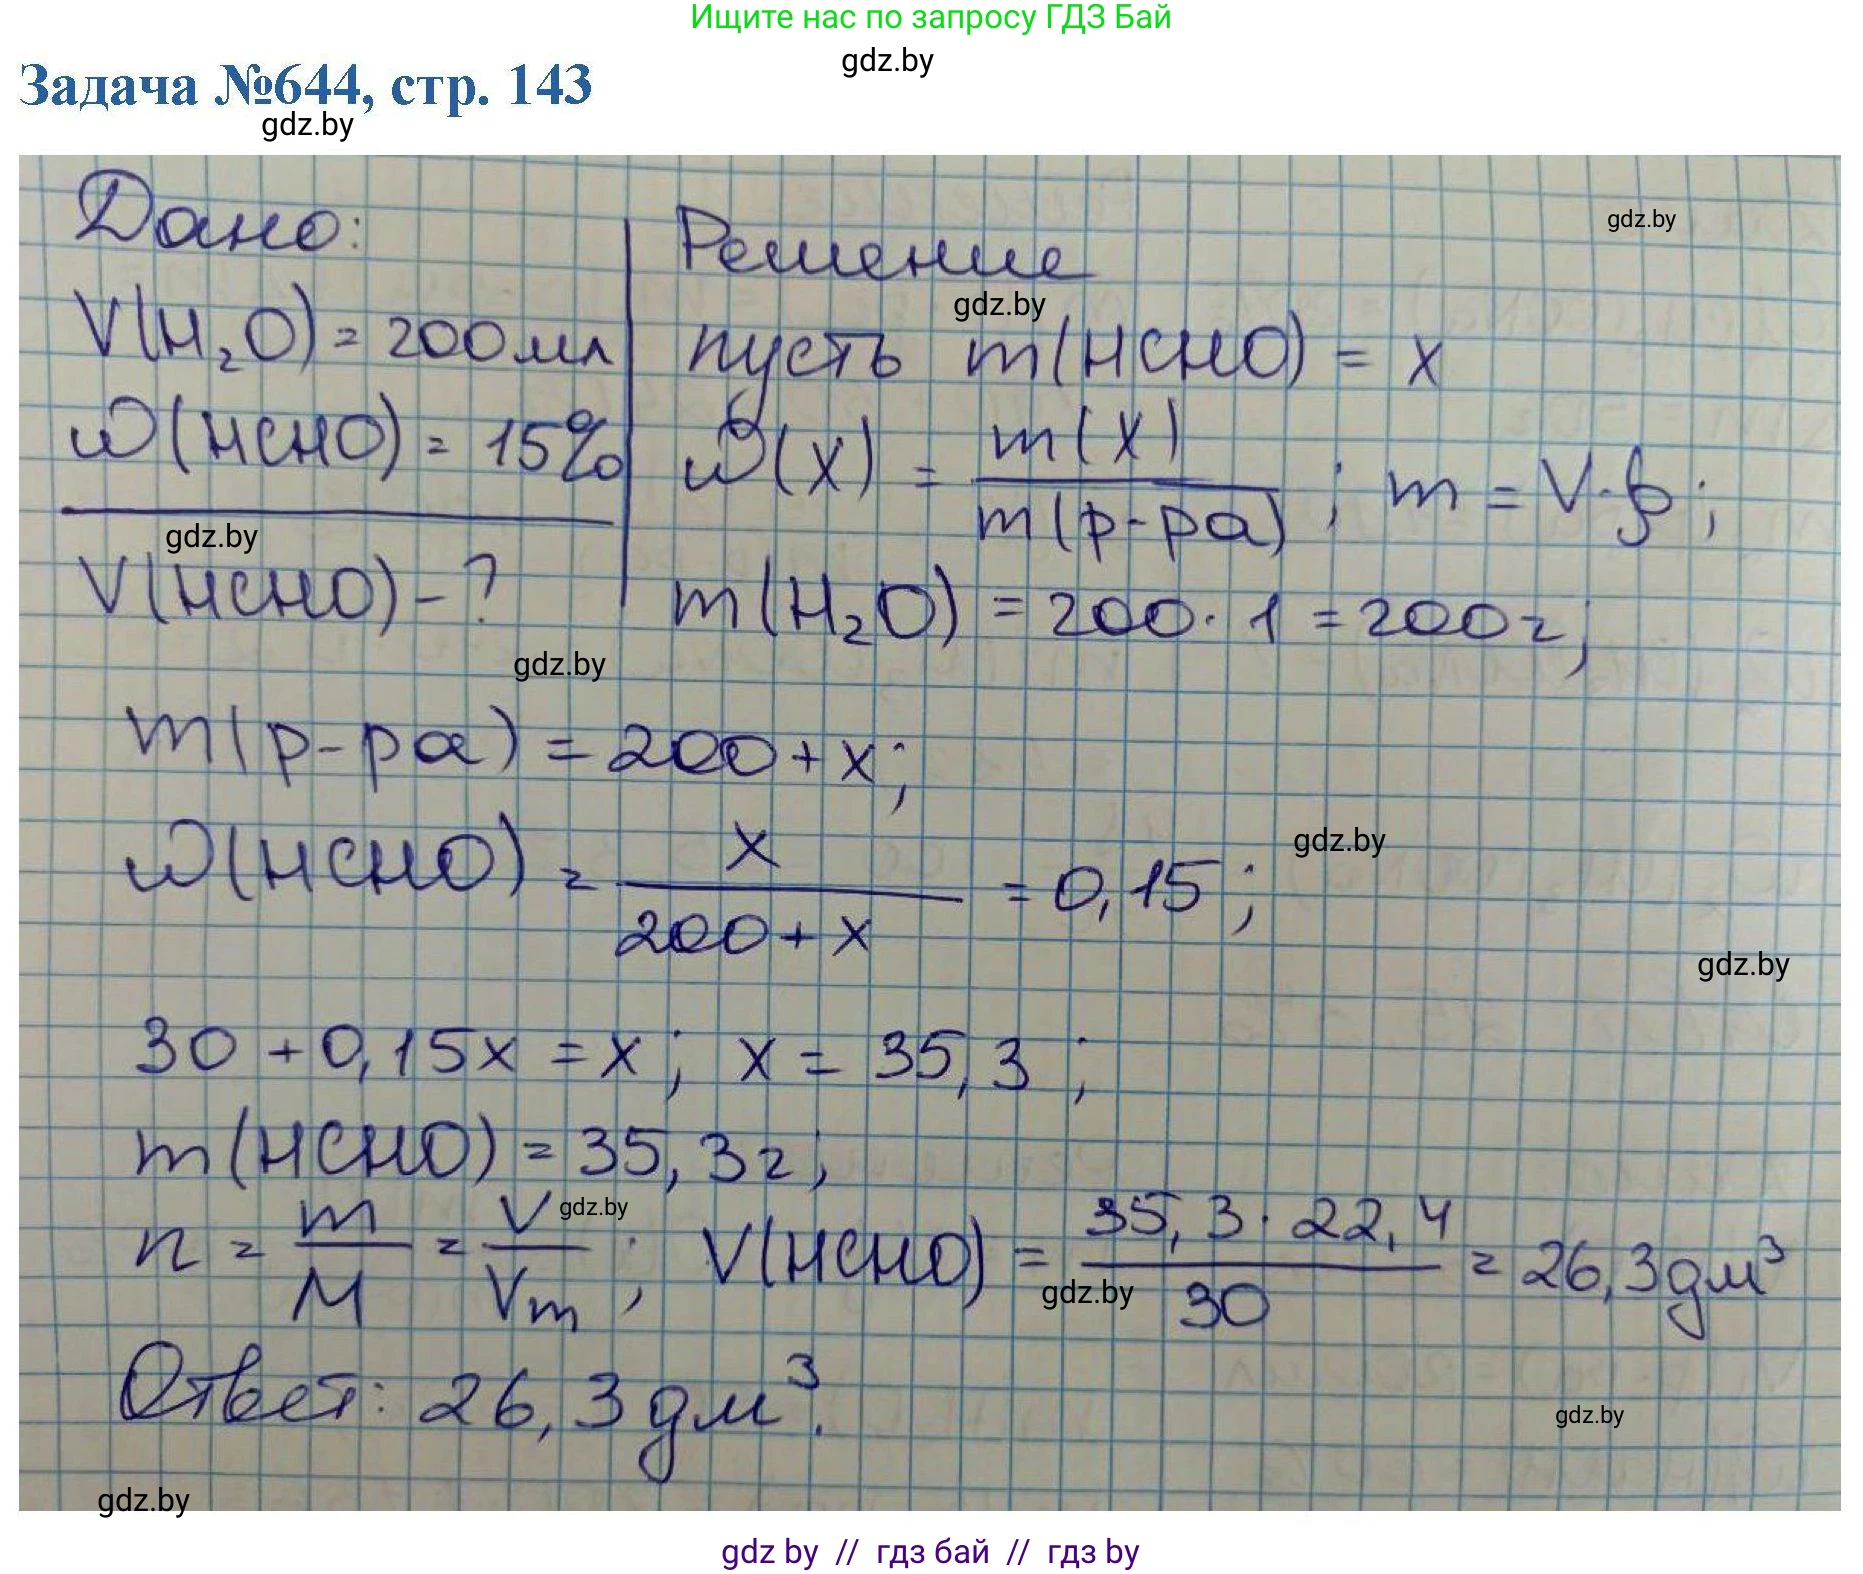 Ищите нас по запросу ГДЗ Бай
gdz.by
Задача №644, стр. 143
gdz.by
Дано:
V(H₂O) = 200 мл
ω(HCHO) = 15%
gdz.by
V(HCHO) - ?
gdz.by
Решение
gdz.by
gdz.by
пусть m(HCHO) = x
ω(X) = m(X) / m(р-ра) ; m = V·ρ;
m(H₂O) = 200 · 1 = 200 г;
m(р-ра) = 200 + x;
ω(HCHO) = x / (200 + x) = 0,15;
gdz.by
gdz.by
30 + 0,15x = x; x = 35,3 ;
m(HCHO) = 35,3 г;
gdz.by
n = m / M = V / Vm ; V(HCHO) = 35,3 · 22,4 / 30 = 26,3 дм³
gdz.by
Ответ: 26,3 дм³.
gdz.by
gdz.by
gdz by // гдз бай // гдз by